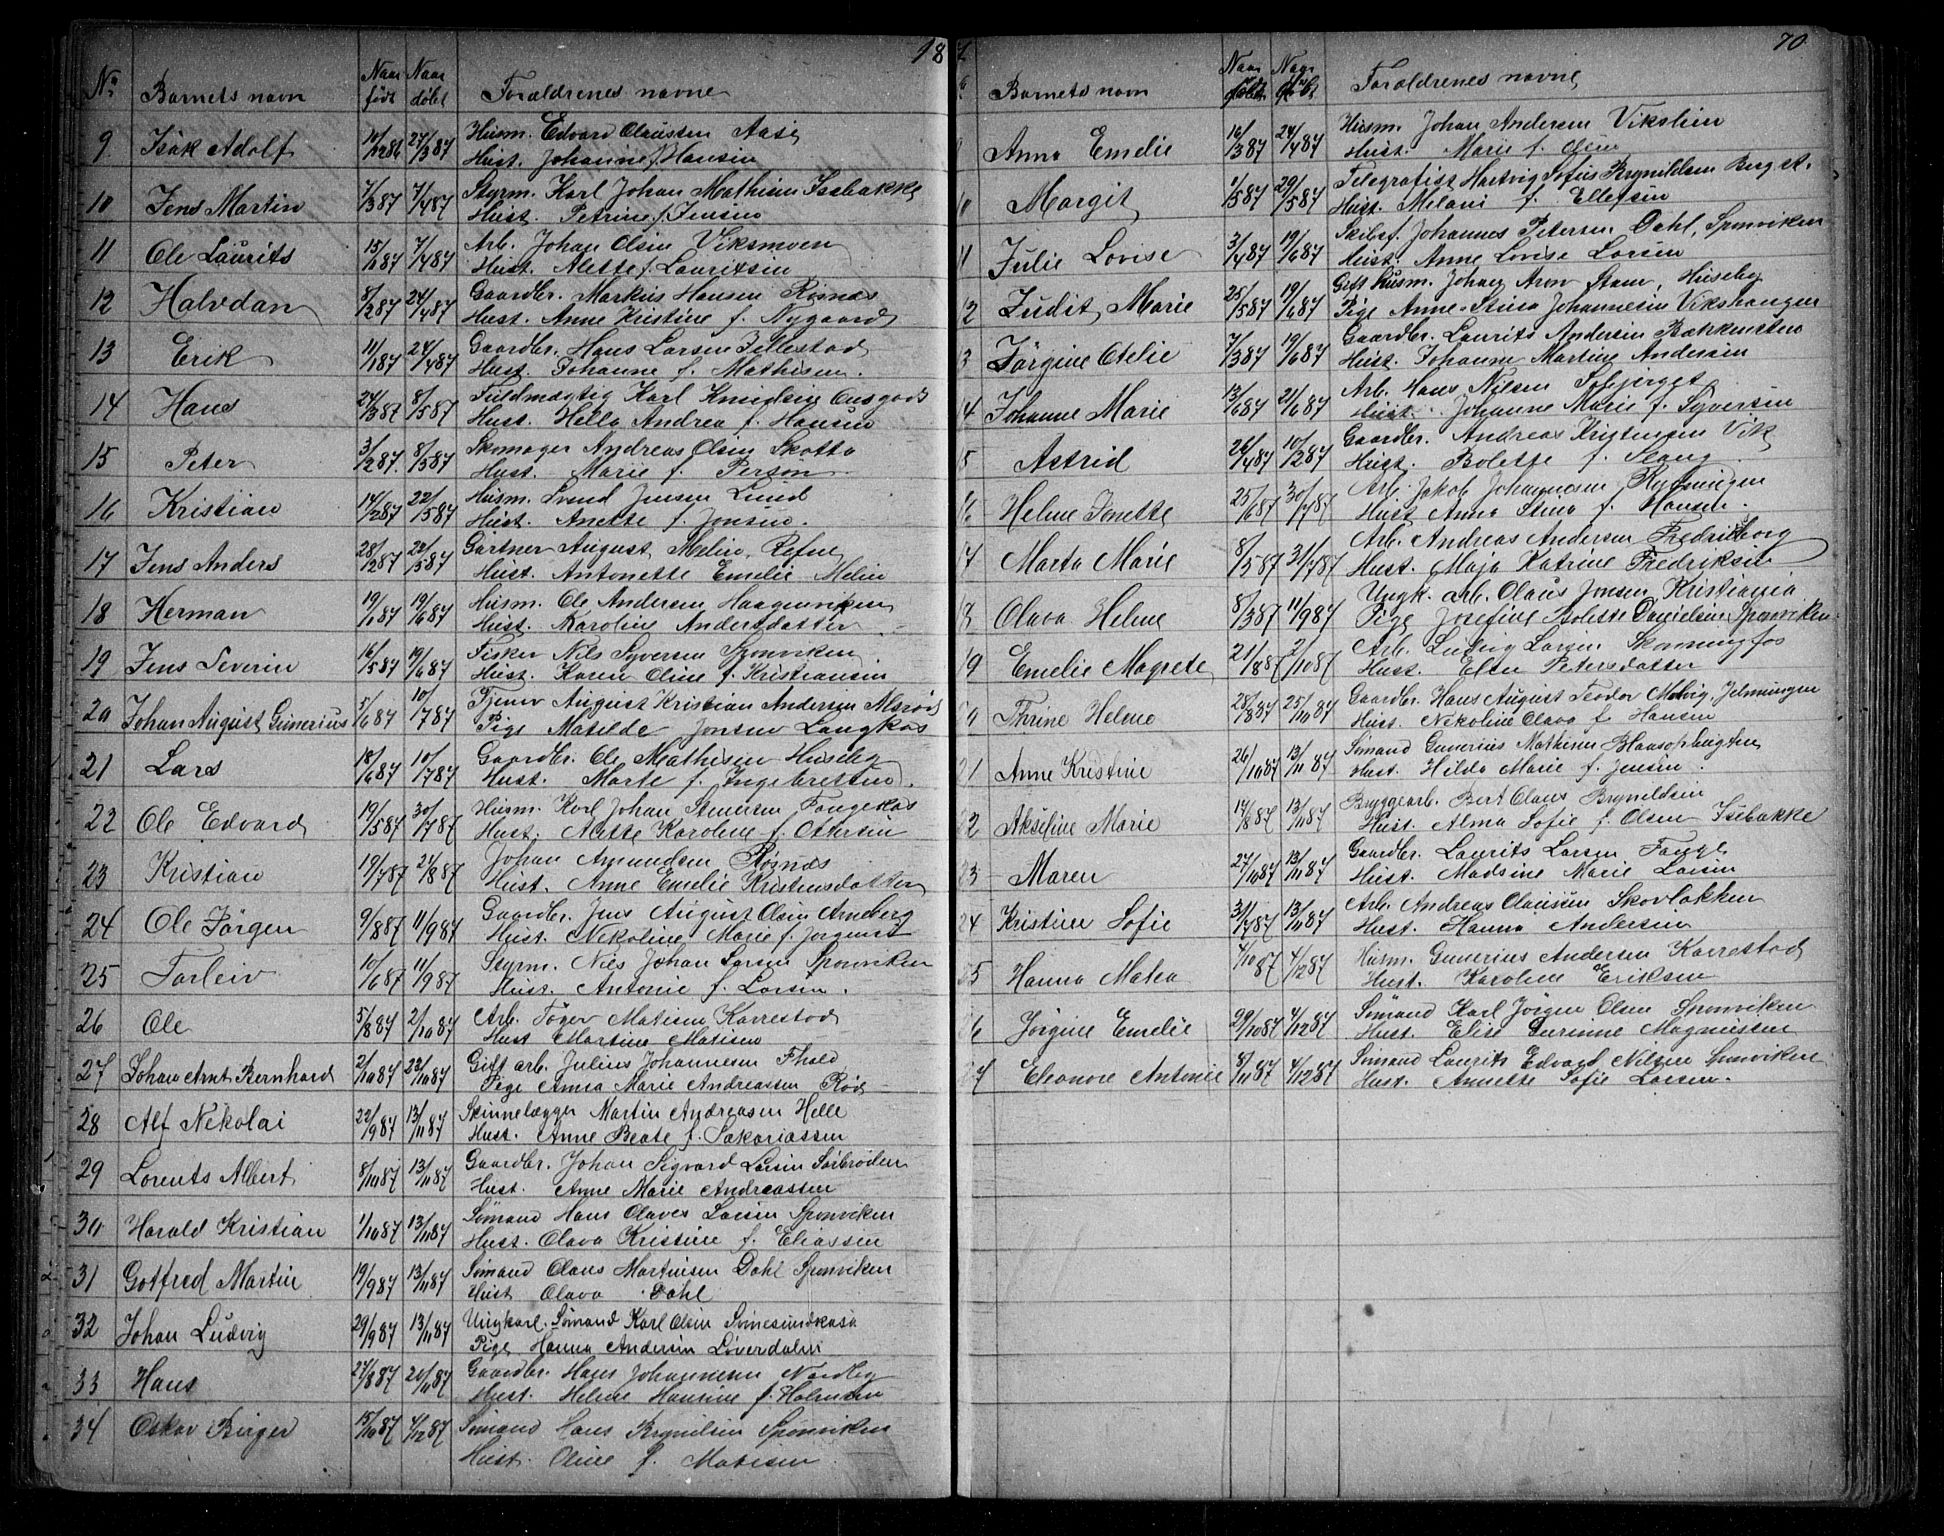 18
No Barnets navn Naar født Naar døbt Foraldrenes navne
9 Isak Adolf 27/3 87 Husm. Edvard Claussen Aase
Hust. Johanne f. Hansen
10 Jens Martin 7/3 87 7/4 87 Styrm. Karl Johan Mathisen Isebakke
Hust. Petrine f. Jensen
11 Ole Laurits 7/4 87 Arb. Johan Olsen Viksmoen
Hust. Alette f. Lauritsen
12 Halvdan 8/2 87 24/4 87 Gaardbr. Markus Hansen Røsnæs
Hust. Anne Kristine f. Nygaard
13 Erik 11/1 87 24/4 87 Gaardbr. Hans Larsen
Hust. Johanne f. Mathisen.
14 Hans 24/3 87 8/5 87 Fuldmægtig Karl Knudsen
Hust. Hella Andrea f. Hansen
15 Peter 3/2 87. 8/5 87 Skomager Andreas Olsen Skotta
Hust. Marie f. Person
16 Kristian 14/2 87 22/5 87 Husm. Svend Jensen Lund
Hust. Anette f. Jonsen.
17 Jens Anders 28/2 87 22/5 87 Gartner August Melin, Refne
Hust. Antonette Emelie Melin
18 Herman 19/1 87 19/6 87 Husm. Ole Andersen Haagenviken
Hust. Karoline Andersdatter
19 Jens Severin 16/5 87 19/6 87 Fisker Nils Syversen Sponviken
Hust. Karen Oline f. Kristiansen
20 Johan August Gunerius 5/6 87 10/7 87 Tjener August Kristian Andersen
Pige Matilde Jonsen Langkas
21 Lars 18/6 87 10/7 87 Gaardbr. Ole Mathisen Huseby
Hust. Marte f. Ingebretsen.
22 Ole Edvard 19/5 87 30/7 87 Husm. Karl Johan Stenersen Fangekas
Hust. Alette Karoline f. Ottersen
23 Kristian 19/7 87 21/8 87 Johan Amundsen Røsnæs
Hust. Anne Emelie Kristensdatter
24 Ole Jørgen 9/8 87 11/9 87 Gaardbr. Jens August Olsen Arneberg
Hust. Nekoline Marie f. Jørgensen
25 Torleiv 10/6 87 11/9 87 Styrm. Nils Johan Larsen Sponviken
Hust. Antonie f. Larsen.
26 Ole 5/8 87 2/10 87 Arb. Tøger Matisen Karrestad
Hust Martine Matisen
27 Johan Arnt Bernhard 2/10 87 23/10 87 Gift arb. Julius Johannesen
Pige Anna Marie Andreassen Rød
28 Alf Nekolai 22/9 87 13/11 87 Skinnelægger Martin Andreasen Helle
Hust. Anne Beate f. Sakariassen
29 Lorents Albert 8/10 87 13/11 87 Gaardbr. Johan Sigvard Larsen Sørbrøden
Hust. Anne Marie Andreassen
30 Harald Kristian 1/10 87 13/11 87 Sømand Hans Olaves Larsen Sponviken
Hust. Olava Kristine f. Eliassen
31 Gotfred Martin 19/9 87 13/11 87 Sømand Claus Martinsen Dahl Sponviken
Hust Olava Dahl
32 Johan Ludvig 29/9 87 13/11 87 Ungkarl. Sømand Karl Olsen
Pige Hanna Andersen Løverdalen
33 Hans 27/8 87 20/11 87 Gaardbr. Hans Johannesen Nordby
Hust. Helene Hansine f. Holmsen
34 Oskar Birger 15/10 87 4/12 87 Sømand Hans Brynilsen Sponviken
Hust. Oline f. Matisen
70
Barnets navn Naar født Naar døbt Foraldrenes navne
Anna Emelie 16/3 87 24/4 87 Husm. Johan Andersen Vikslien
Hust. Marie f. Olsen
10 Margit 1/5 87 29/5 87 Telegrafist Hartvig Sofus Brynildsen Berg st.
Hust. Melani f. Ellefsen
11 Julie Lovise 3/4 87 19/6 87 Skibsf. Johannes Petersen Dahl, Sponviken
Hust. Anne Lovise Larsen
12 Judit Marie 25/5 87 19/6 87 Gift husm. Johan Aron Stam, Huseby
Pige Anne-Stina Johannesen Vikshaugen
13 Jørgine Otelie 7/3 87 19/6 87 Gaardbr. Laurits Andersen Bakkensten
Hust. Johanne Martine Andersen
14 Johanne Marie 13/6 87 21/6 87 Arb. Hans Nilsen
Hust. Johanne Marie f. Syversen
15 Astrid 26/4 87 10/7 87 Gaardbr. Andreas Kristensen Vik
Hust. Bolette f. Stang
16 Helene Jonette 25/6 87 30/7 87 Arb. Jakob Johannesen
Hust Anna Stina f. Hansen.
17 Marta Marie 8/5 87 31/7 87 Arb. Andreas Andersen Fredriksborg
Hust. Maja Katrine Fredriksen
18 Olava Helene 8/3 87 11/9 87 Ungk. Arb. Olaus Jonsen Kristiania
Pige Josefine Bolette Danielsen Sponviken
19 Emelie Magrete 21/8 87 2/10 87 Arb. Ludvig Larsen Skonningfos
Hust. Elen Petersdatter
20 Thrine Helene 28/8 87 25/10 87 Gaardbr. Hans August Teodor Melvig, Jelmungen
Hust. Nekoline Olava f. Hansen
21 Anne Kristine 26/10 87 13/11 87 Sømand Gunerius Mathisen
Hust. Hilda Marie f. Jensen
22 Akseline Marie 14/8 87 13/11 87 Bryggearb. Bert Claus Brynildsen
Hust. Alma Sofie f. Olsen Isebakke
23 Maren 27/10 87 13/11 87 Gaardbr. Laurits Larsen Fange
Hust. Madsine Marie Larsen
24 Kristine Sofie 31/7 87 13/11 87 Arb. Andreas Clausen Skovlakken
Hust. Hanna Andersen
25 Hanna Matea 4/10 87 4/12 87 Husm. Gunerius Andersen Karrestad
Hust. Karoline Eriksen
26 Jørgine Emelie 29/10 87 4/12 87 Sømand Karl Jørgen Olsen Sponviken
Hust. Elise Magnussen
27 Eleonore Antonie 8/11 87 4/12 87 Sømand Laurits Edvard Nilsen Sponviken
Hust. Annette Sofie Larsen.